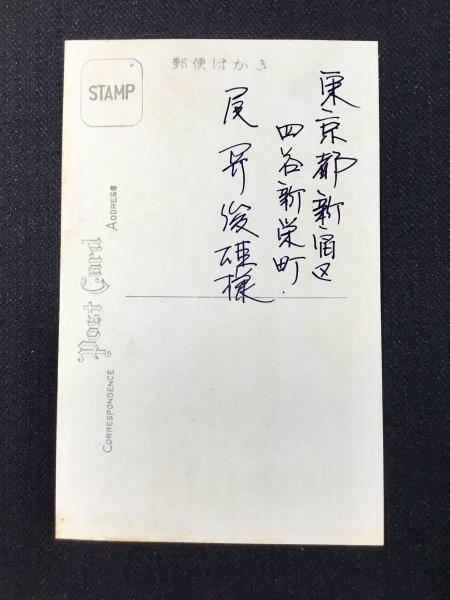 郵便はがき
STAMP
東京都新宿区
四谷新栄町.
尾昇俊雄様
ADDRESS
Post Card
CORRESPONDENCE